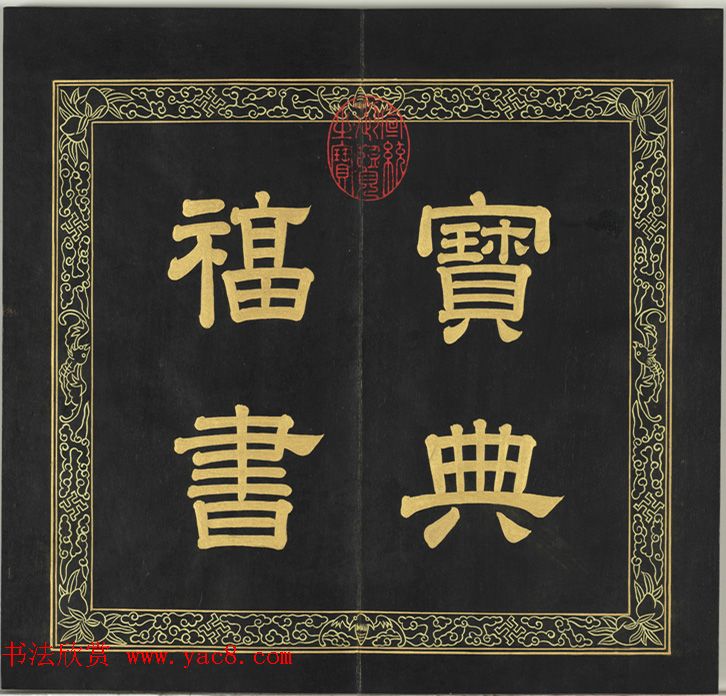 寶典
福書
書法欣赏 www.yac8.com